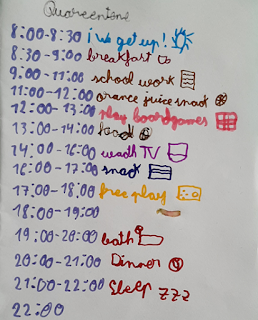 Quareentene
8:00-8:30 i we get up!
8:30-9:00 breakfast
9:00-11:00 school work
11:00-12:00 orange juice snack
12:00-13:00 play boardgames
13:00-14:00 food
14:00-16:00 wacth TV
16:00-17:00 snack
17:00-18:00 free play
18:00-19:00
19:00-20:00 bath
20:00-21:00 Dinner
21:00-22:00 Sleep zzz
22:00